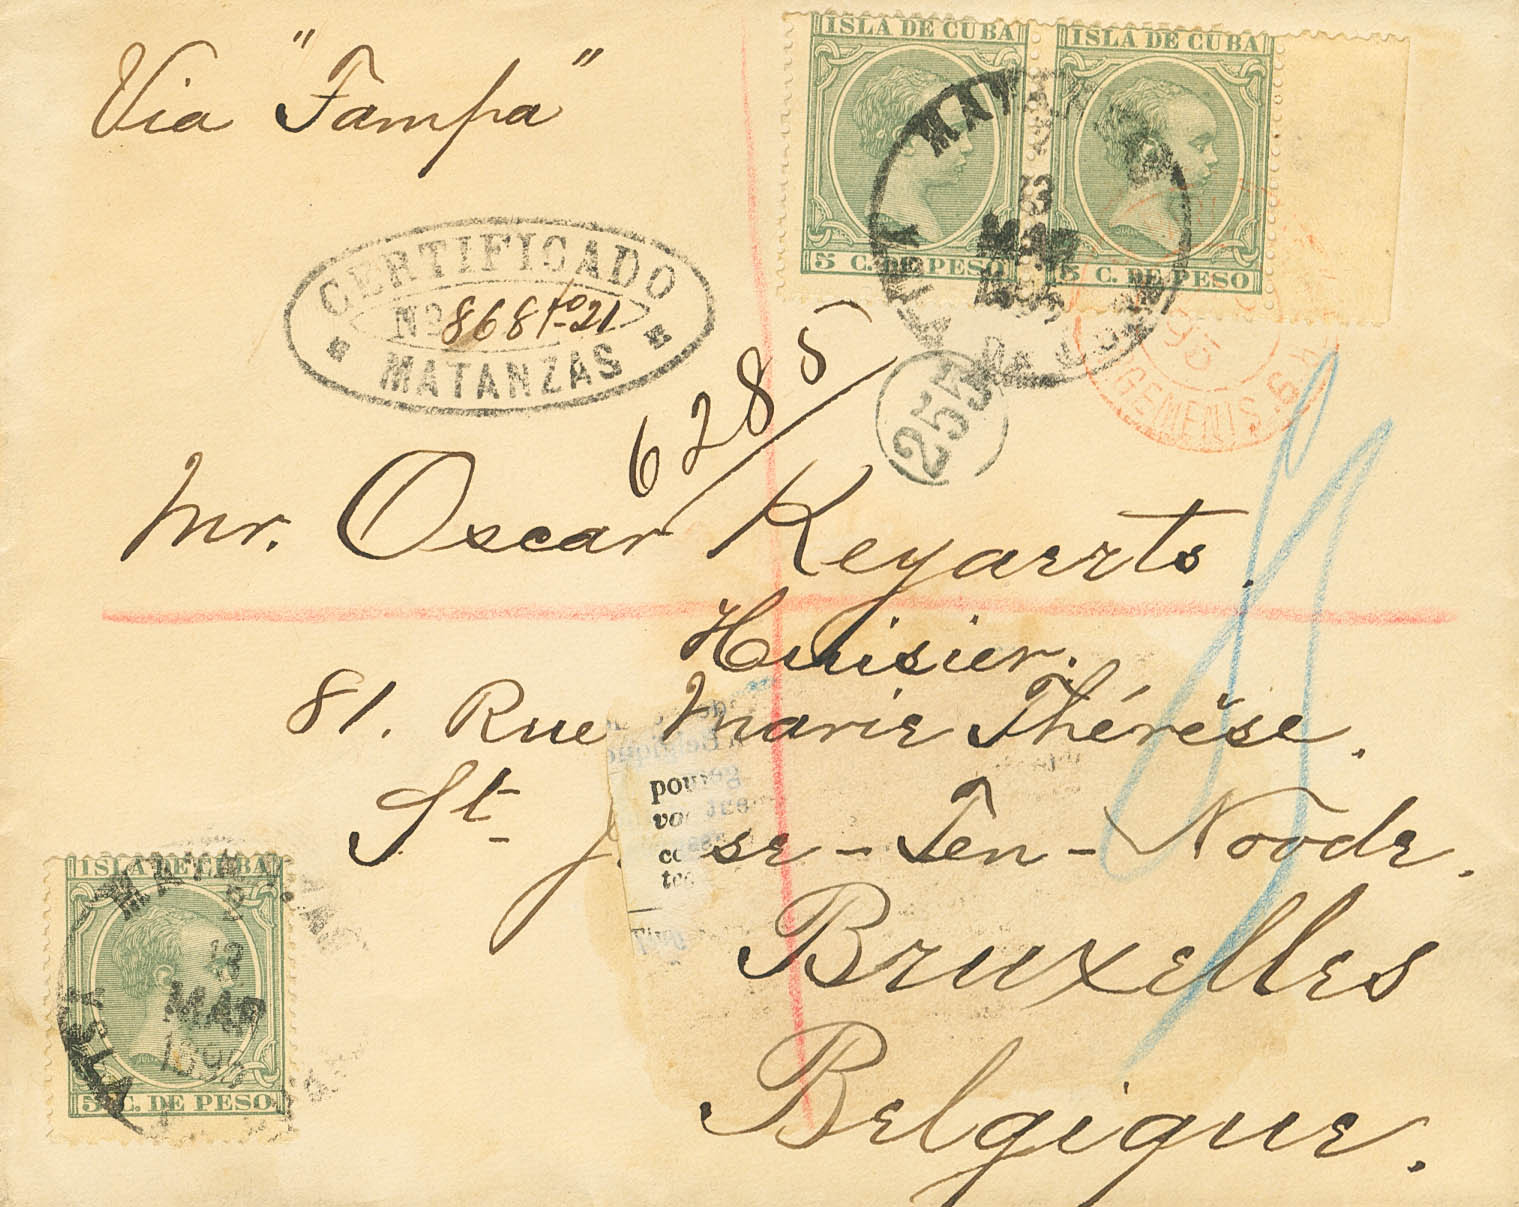 Via "Tampa"
ISLA DE CUBA
5 C. DE PESO
ISLA DE CUBA
5 C. DE PESO
MAR
CERTIFICADO
Nº 8681
MATANZAS
6285
255
95
Mr. Oscar Keyaerts.
Huisier.
81. Rue Marie Thérèse.
St- J. se-Ten-Noode.
Bruxelles
Belgique.
ISLA DE CUBA
MAR
1895
5 C. DE PESO